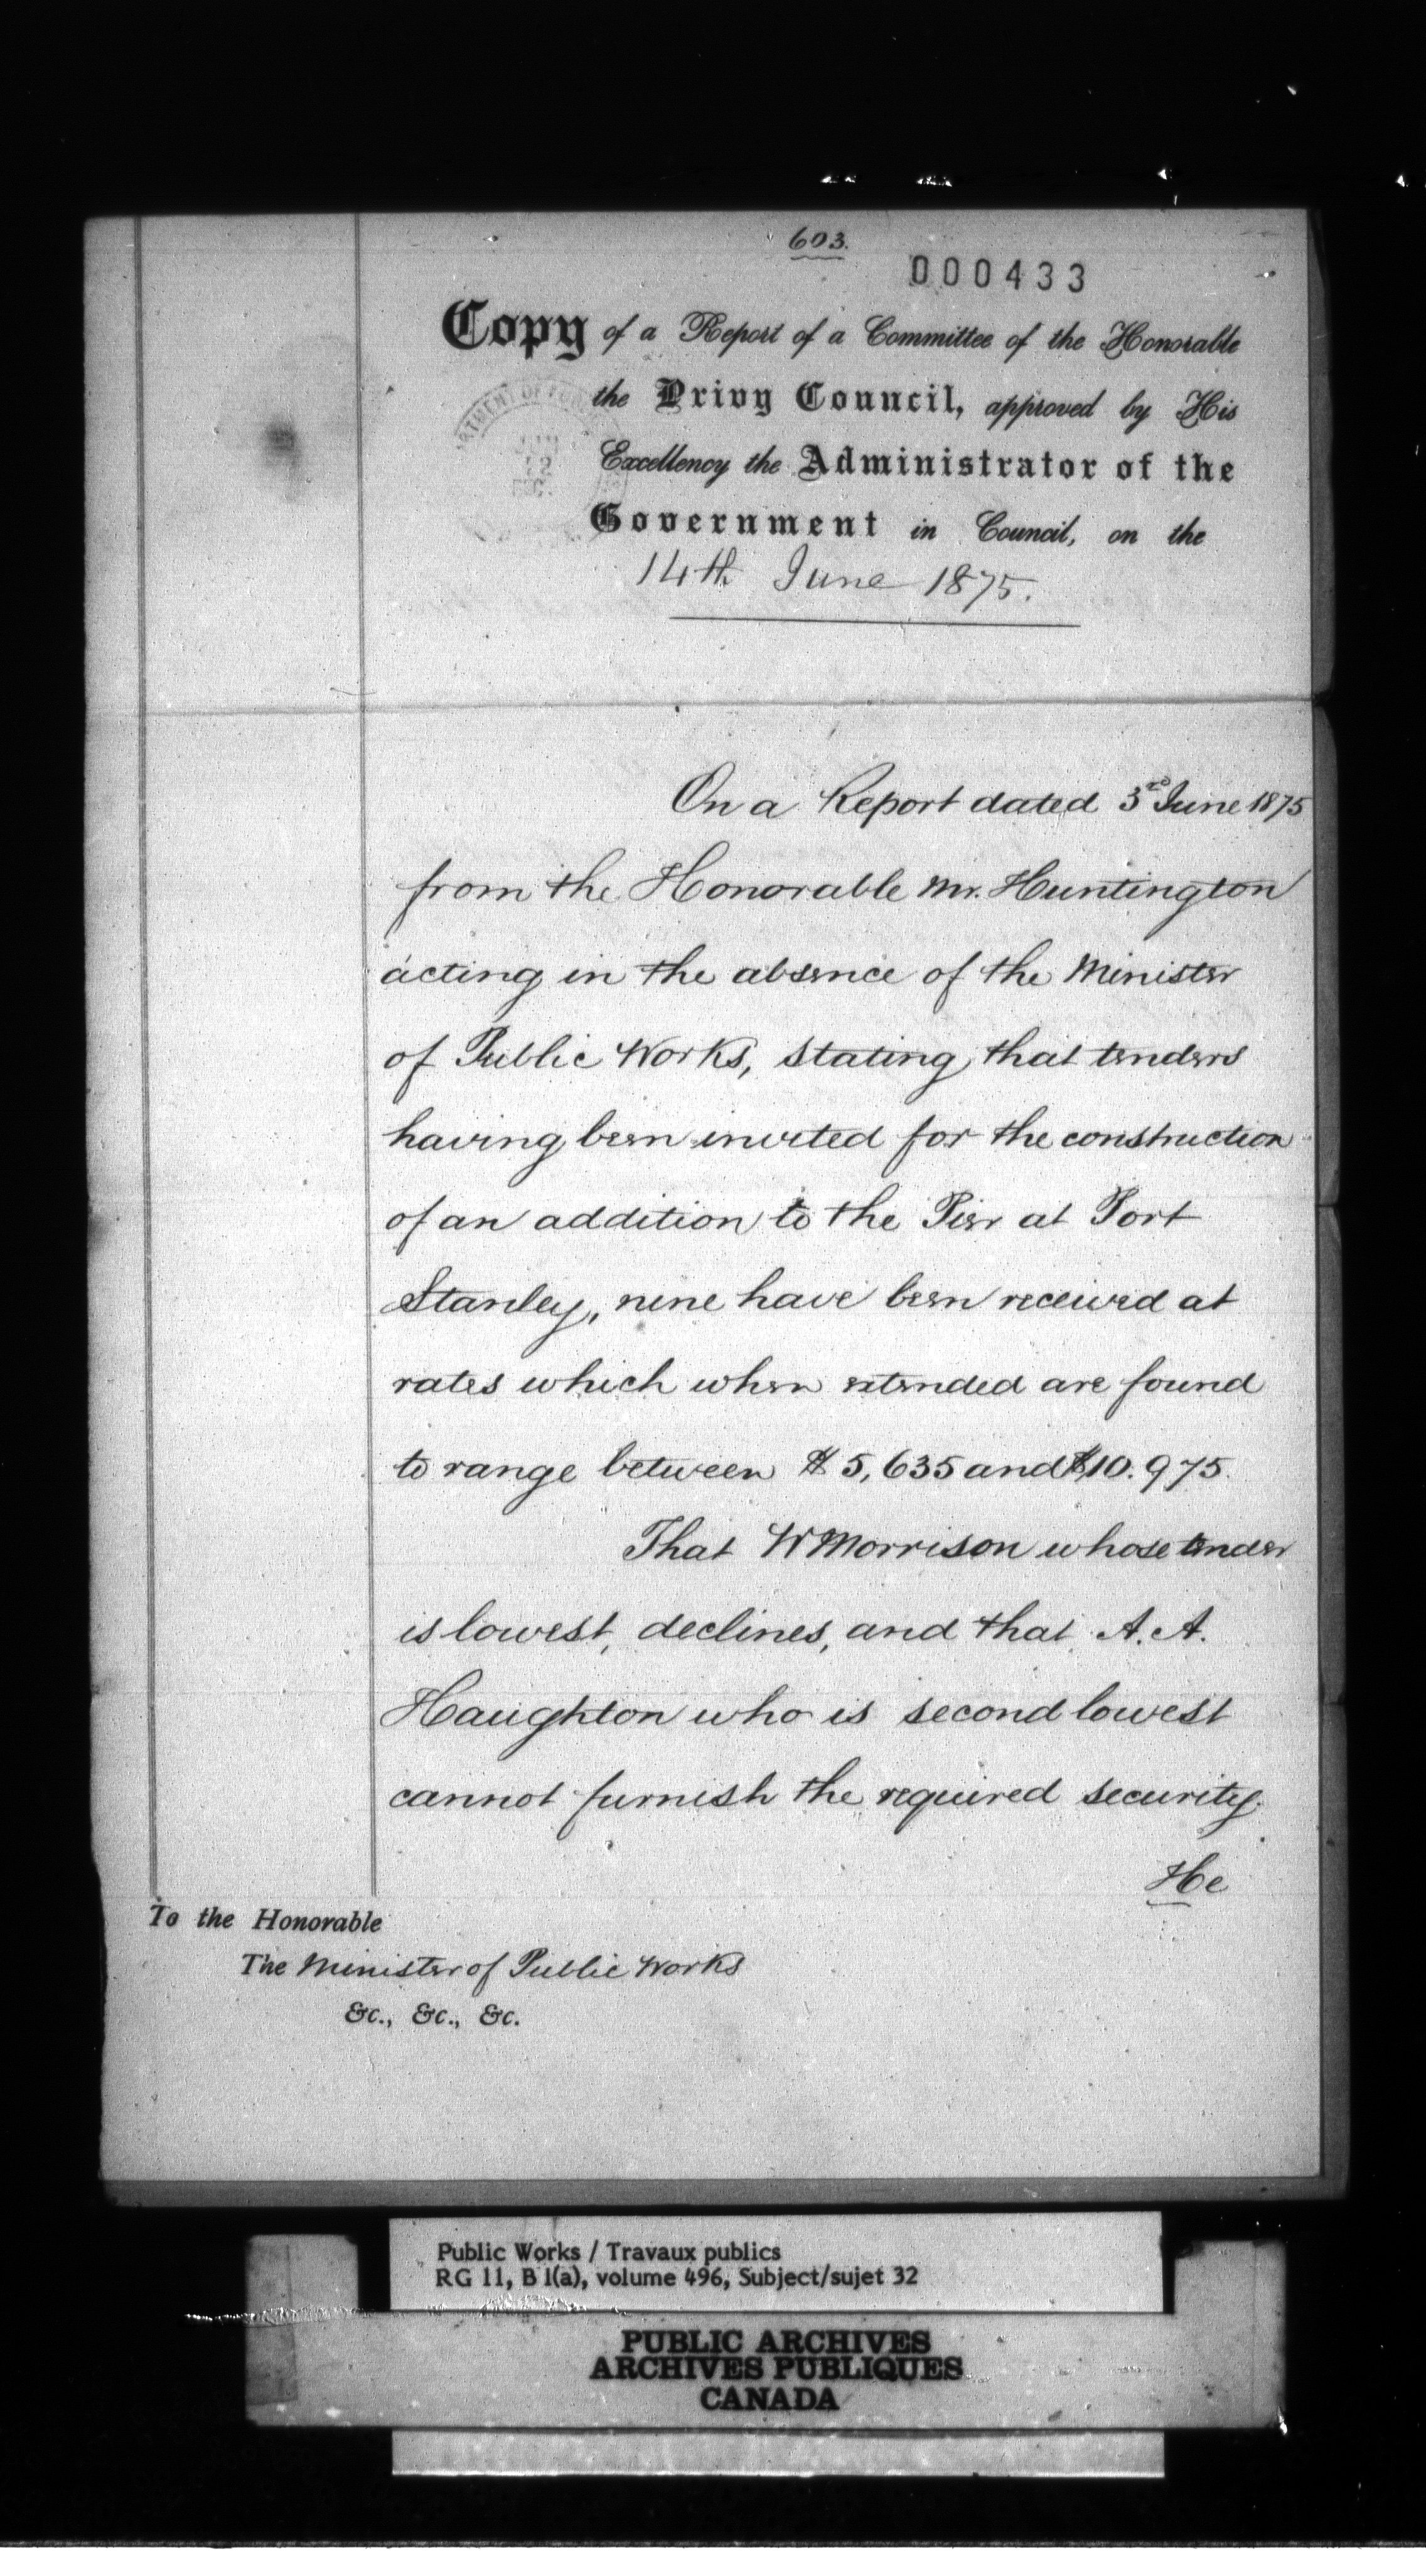 603.
000433
Copy of a Report of a Committee of the Honorable
the Privy Council, approved by His
Excellency the Administrator of the
Government in Council, on the
14th June 1875.
On a Report dated 3rd June 1875
from the Honorable Mr. Huntington
acting in the absence of the Minister
of Public Works, stating that tenders
having been invited for the construction
of an addition to the Pier at Port
Stanley, nine have been received at
rates which when extended are found
to range between $5,635 and $10.975.
That W Morrison whose tender
is lowest, declines, and that A. A.
Haughton who is second lowest
cannot furnish the required security.
He
To the Honorable
The Minister of Public Works
&c., &c., &c.
Public Works / Travaux publics
RG 11, B 1(a), volume 496, Subject/sujet 32
PUBLIC ARCHIVES
ARCHIVES PUBLIQUES
CANADA